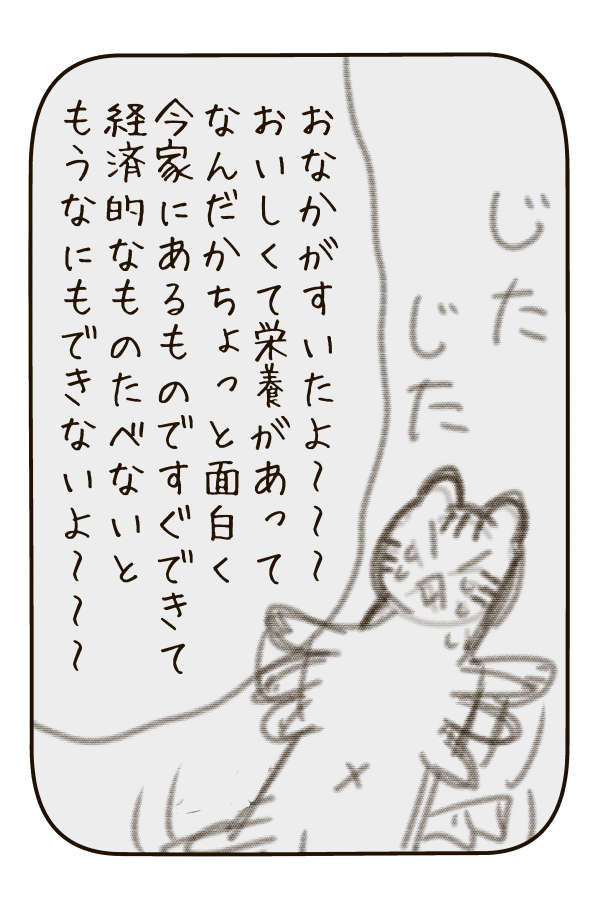 おなかがすいたよ～～～
おいしくて栄養があって
なんだかちょっと面白く
今家にあるものですぐできて
経済的なものたべないと
もうなにもできないよ～～～
じた
じた